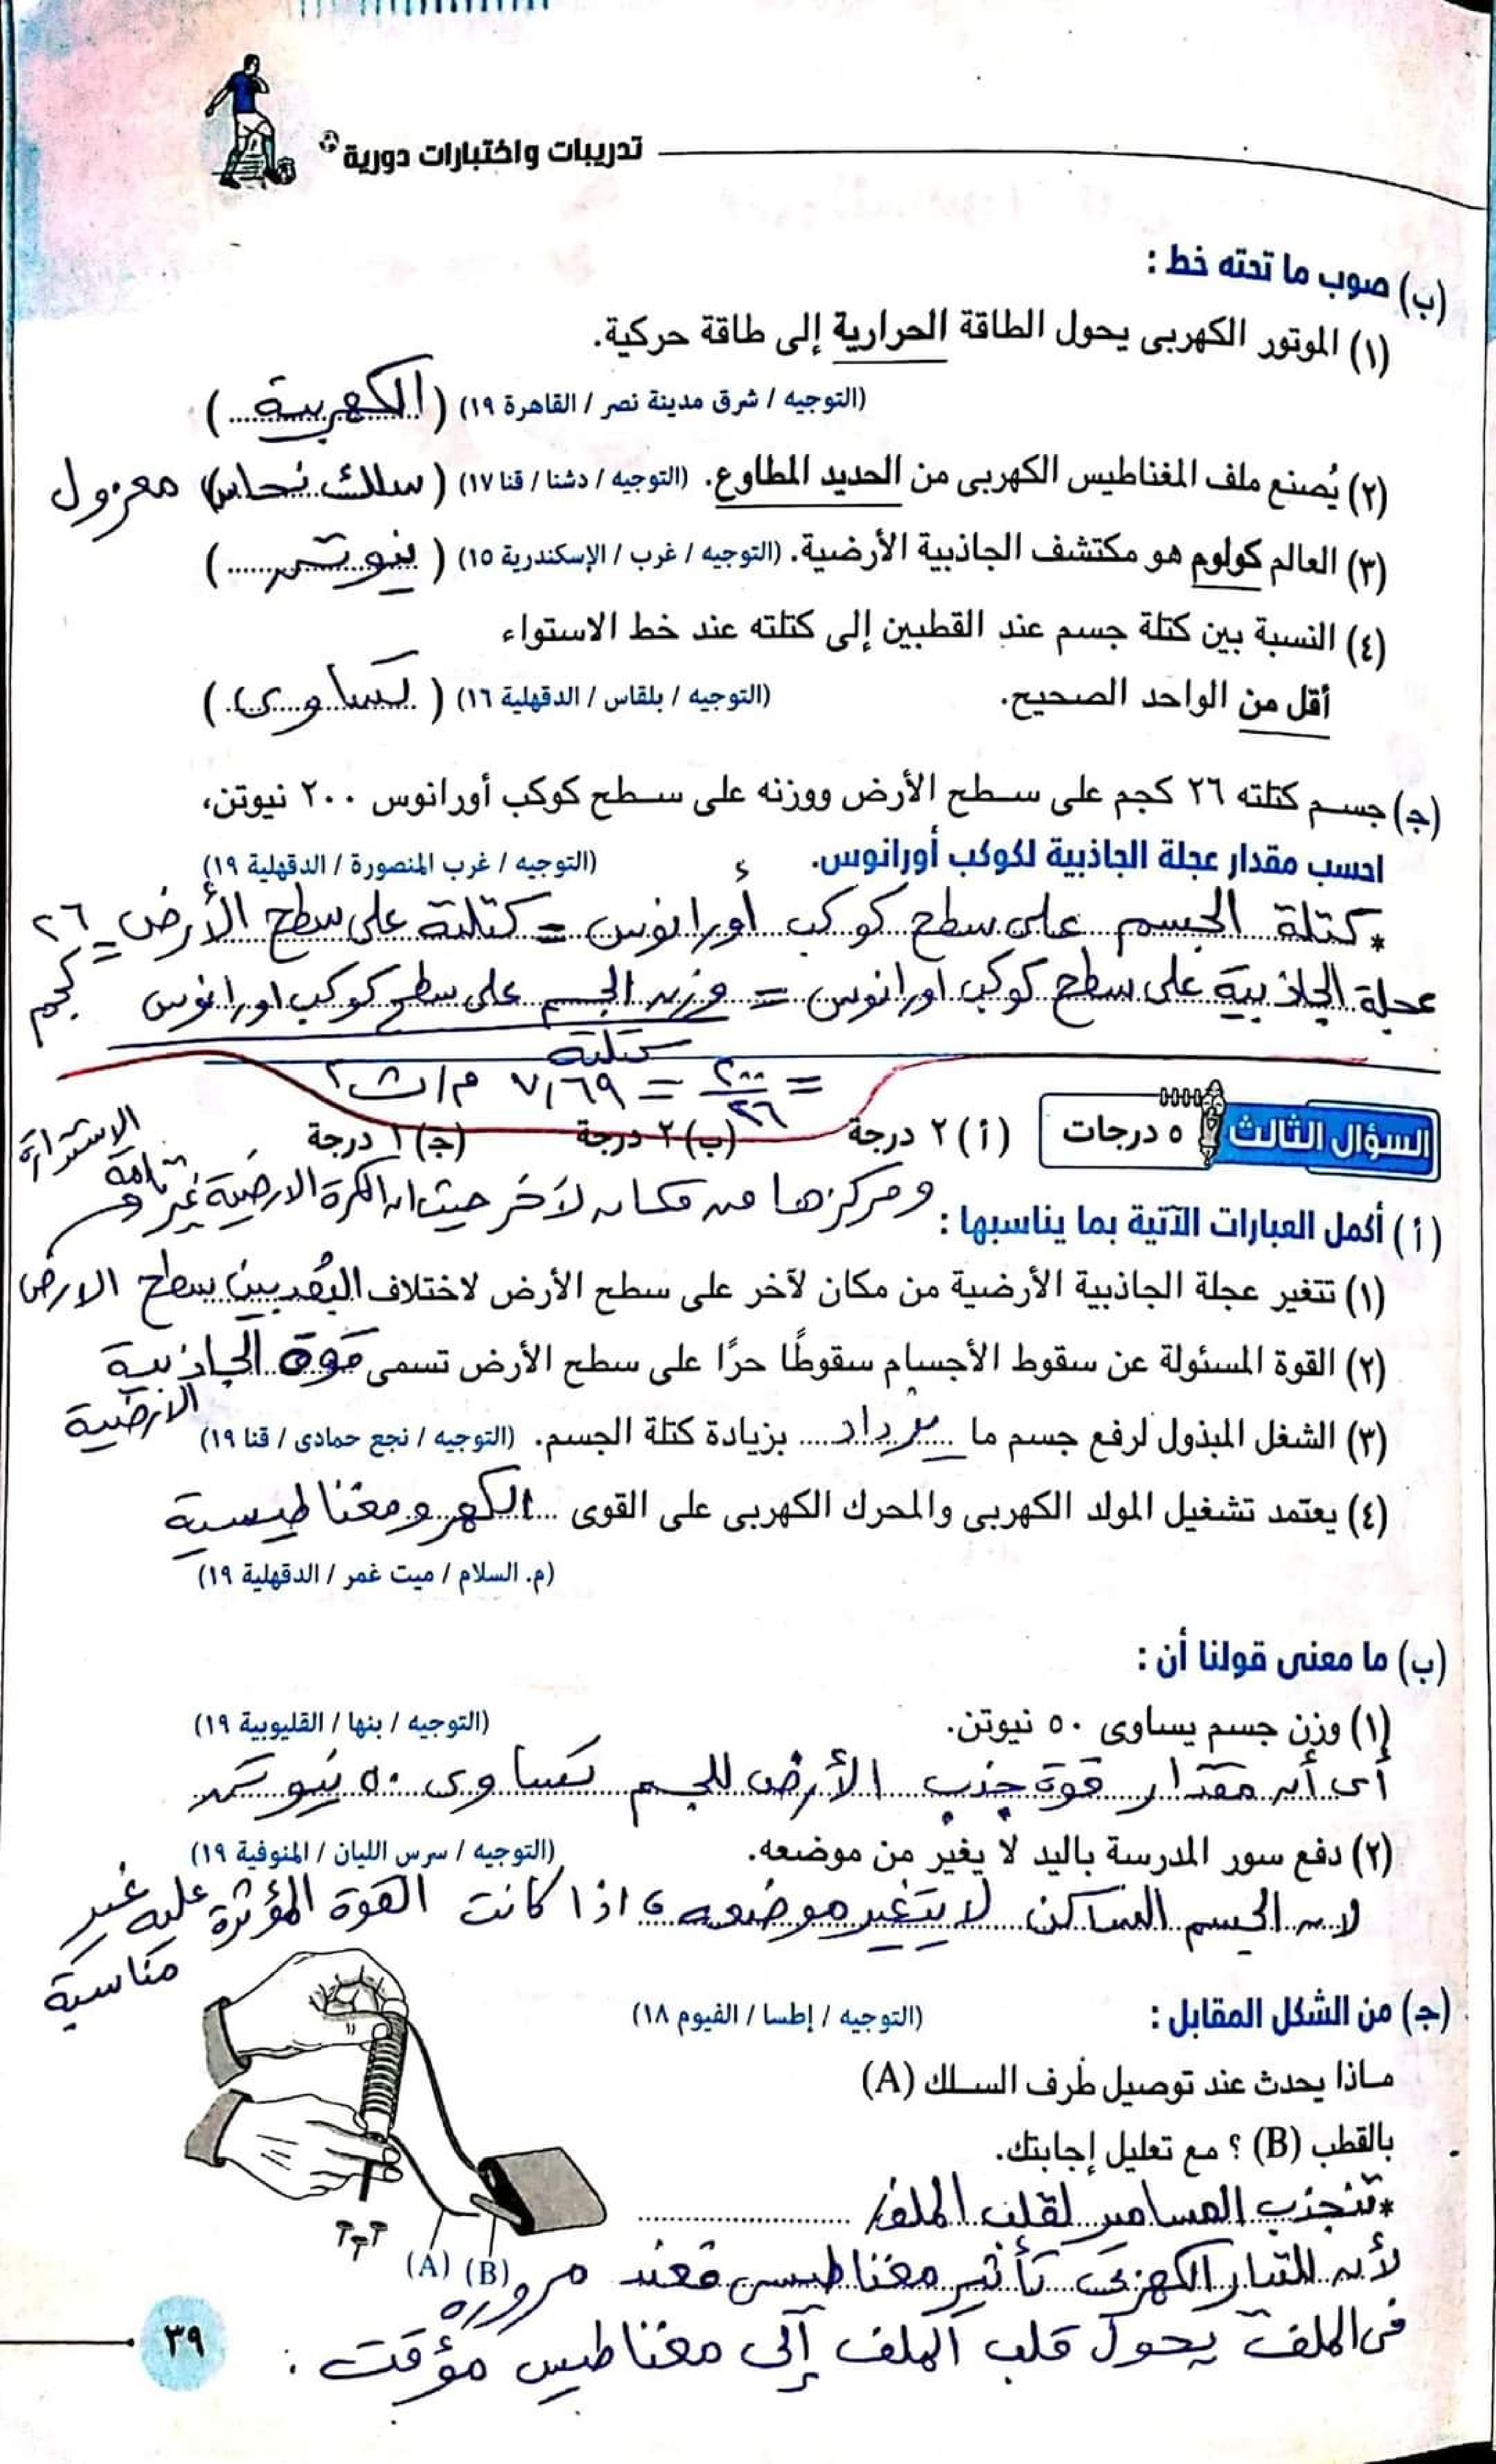 تدريبات واختبارات دورية
(ب) صوب ما تحته خط :
(١) الموتور الكهربى يحول الطاقة الحرارية إلى طاقة حركية.
(التوجيه / شرق مدينة نصر / القاهرة ١٩) (الكهربية)
(٢) يُصنع ملف المغناطيس الكهربى من الحديد المطاوع. (التوجيه / دشنا / قنا ١٧) (سلك نحاس) معزول
(٣) العالم كولوم هو مكتشف الجاذبية الأرضية. (التوجيه / غرب / الإسكندرية ١٥) (نيوتن)
(٤) النسبة بين كتلة جسم عند القطبين إلى كتلته عند خط الاستواء
أقل من الواحد الصحيح. (التوجيه / بلقاس / الدقهلية ١٦) (تساوى)
(ج) جسم كتلته ٢٦ كجم على سطح الأرض ووزنه على سطح كوكب أورانوس ٢٠٠ نيوتن،
احسب مقدار عجلة الجاذبية لكوكب أورانوس. (التوجيه / غرب المنصورة / الدقهلية ١٩)
* كتلة الجسم على سطح كوكب أورانوس = كتلته على سطح الأرض = ٢٦
كجم
عجلة الجاذبية على سطح كوكب اورانوس = وزن الجسم على سطح كوكب اورانوس
كتلته
= ٢٠٠/٢٦ = ٧,٦٩ م/ث٢
السؤال الثالث ٥ درجات (أ) ٢ درجة (ب) ٢ درجة (ج) ١ درجة
(أ) أكمل العبارات الآتية بما يناسبها :
ومركزها من مكان لآخر حيث ان الكرة الارضية غير تامة
الاستدارة
(١) تتغير عجلة الجاذبية الأرضية من مكان لآخر على سطح الأرض لاختلاف البُعد بين سطح الارض
(٢) القوة المسئولة عن سقوط الأجسام سقوطًا حرًا على سطح الأرض تسمى قوة الجاذبية
الارضية
(٣) الشغل المبذول لرفع جسم ما يزداد بزيادة كتلة الجسم. (التوجيه / نجع حمادى / قنا ١٩)
(٤) يعتمد تشغيل المولد الكهربى والمحرك الكهربى على القوى الكهرومغناطيسية
(م. السلام / ميت غمر / الدقهلية ١٩)
(ب) ما معنى قولنا أن :
(١) وزن جسم يساوى ٥٠ نيوتن. (التوجيه / بنها / القليوبية ١٩)
أى أن مقدار قوة جذب الأرض للجسم تساوى ٥٠ نيوتن
(٢) دفع سور المدرسة باليد لا يغير من موضعه. (التوجيه / سرس الليان / المنوفية ١٩)
لان الجسم الساكن لا يتغير موضعه ، اذا كانت القوة المؤثرة عليه غير
مناسبة
(ج) من الشكل المقابل : (التوجيه / إطسا / الفيوم ١٨)
ماذا يحدث عند توصيل طرف السلك (A)
بالقطب (B) ؟ مع تعليل إجابتك.
* تنجذب المسامير لقلب الملف /
(A) (B)
لأن للتيار الكهربى تأثير مغناطيسى فعند مروره
فى الملف يحول قلب الملف إلى مغناطيس مؤقت .
٣٩